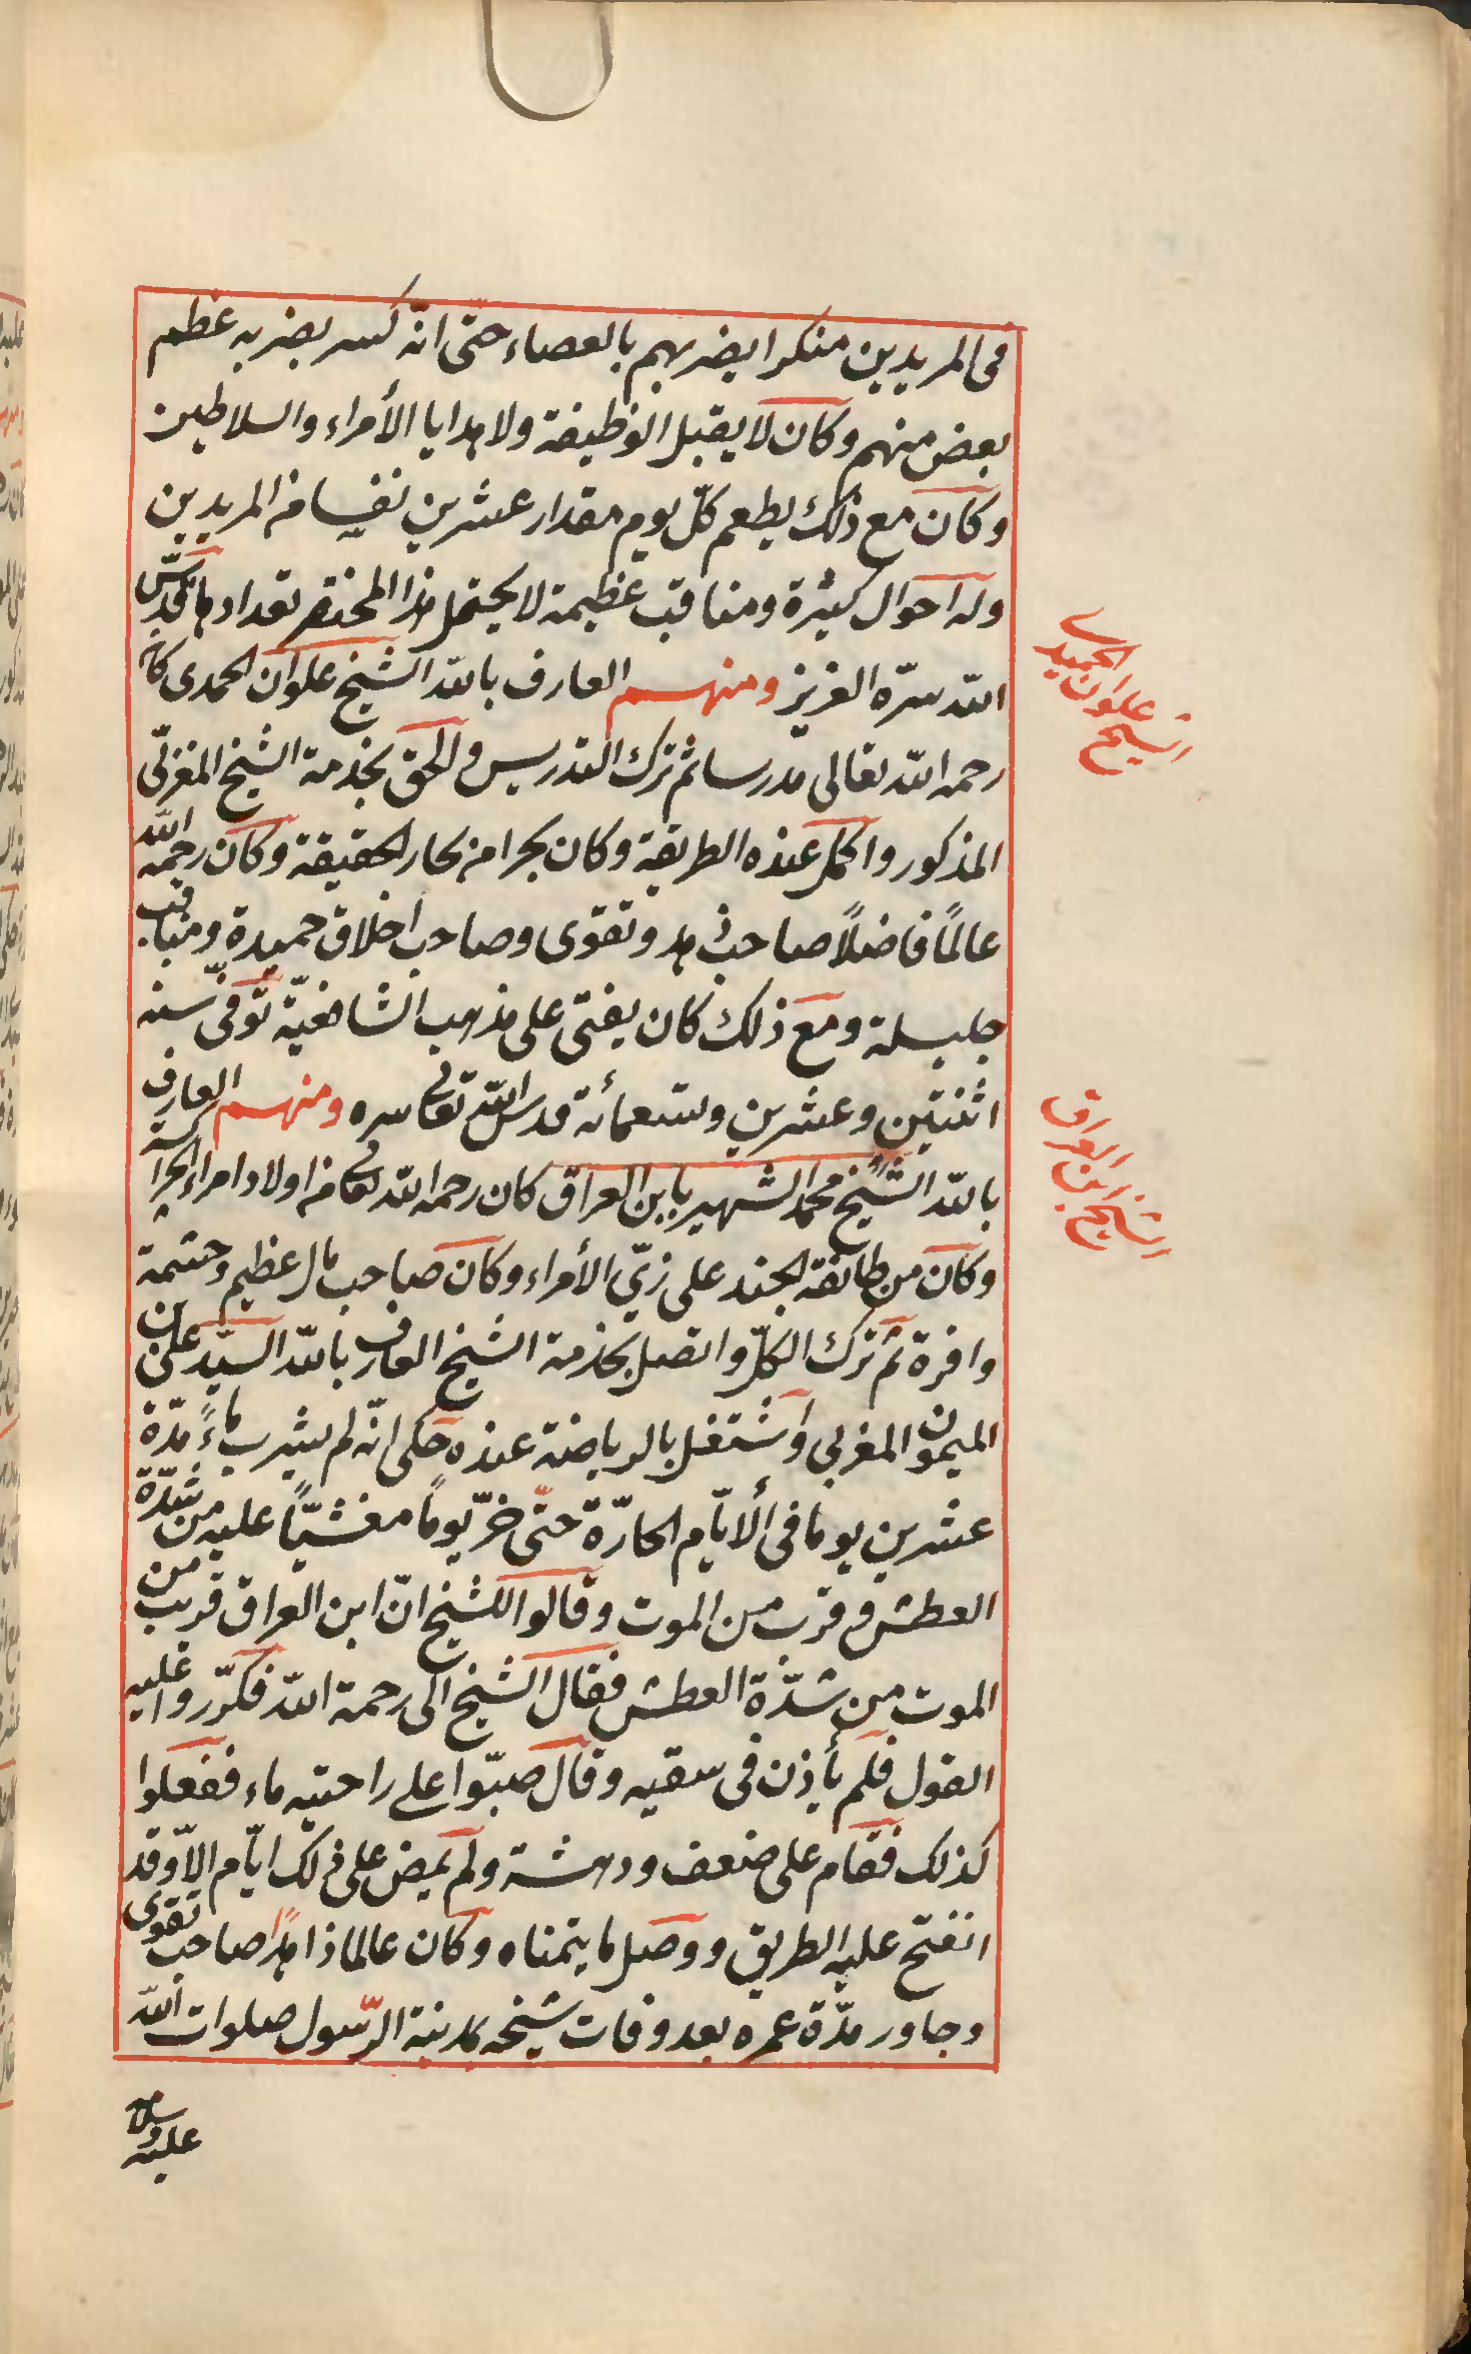 فى المريدين منكرا يضربهم بالعصاء حتّى انّه كسر بضربه عظم
بعض منهم وكان لا يقبل الوظيفة ولا هدايا الأمراء والسلاطين
وكان مع ذلك يطعم كلّ يوم مقدار عشرين نفسا من المريدين
وله احوال كثيرة ومناقب عظيمة لا يحتمل هذا المختصر تعدادها قدّس
الله سرّه العزيز ومنهم العارف بالله الشيخ علوان الحمدى كان
رحمه الله تعالى مدرسا ثم ترك التدريس والحق بخدمة الشيخ المغربّى
المذكور واكمل عنده الطريقة وكان بحرا من بحار الحقيقة وكان رحمه الله
عالمًا فاضلًا صاحب زهد وتقوى وصاحب أخلاق حميدة ومناقب
جليلة ومع ذلك كان يفتى على مذهب الشافعيّة توفّى سنه
اثنتين وعشرين وتسعمائة قدس الله تعالى سره ومنهم العارف
بالله الشيخ محمد الشهير بابن العراق كان رحمه الله تعالى من اولاد امراء الجراكسة
وكان من طائفة الجند على زىّ الأمراء وكان صاحب مال عظيم وحشمة
وافرة ثم ترك الكلّ واتصل بخدمة الشيخ العارف بالله السيّد على بن
الميمون المغربى واشتغل بالرياضة عنده حكى انّه لم يشرب ماءً مدّة
عشرين يوما فى ألايّام الحارّة حتّى خرّ يومًا مغشيّا عليه من شدّة
العطش وقرب من الموت وقالوا للشيخ انّ ابن العراق قريب من
الموت من شدّة العطش فقال الشيخ الى رحمة الله فكرّروا عليه
القول فلم يأذن فى سقيه وقال صبّوا على راحتيه ماء ففعلوا
كذلك فقام على ضعف ودهشة ولم يمض على ذلك ايّام الاّ وقد
انفتح عليه الطريق ووصل ما يتمناه وكان عالما زاهدًا صاحب تقوى
وجاور مدّة عمره بعد وفات شيخه بمدينة الرّسول صلوات الله
عليه وسلامه
الشيخ علوان الحميدى
الشيخ ابن العراق